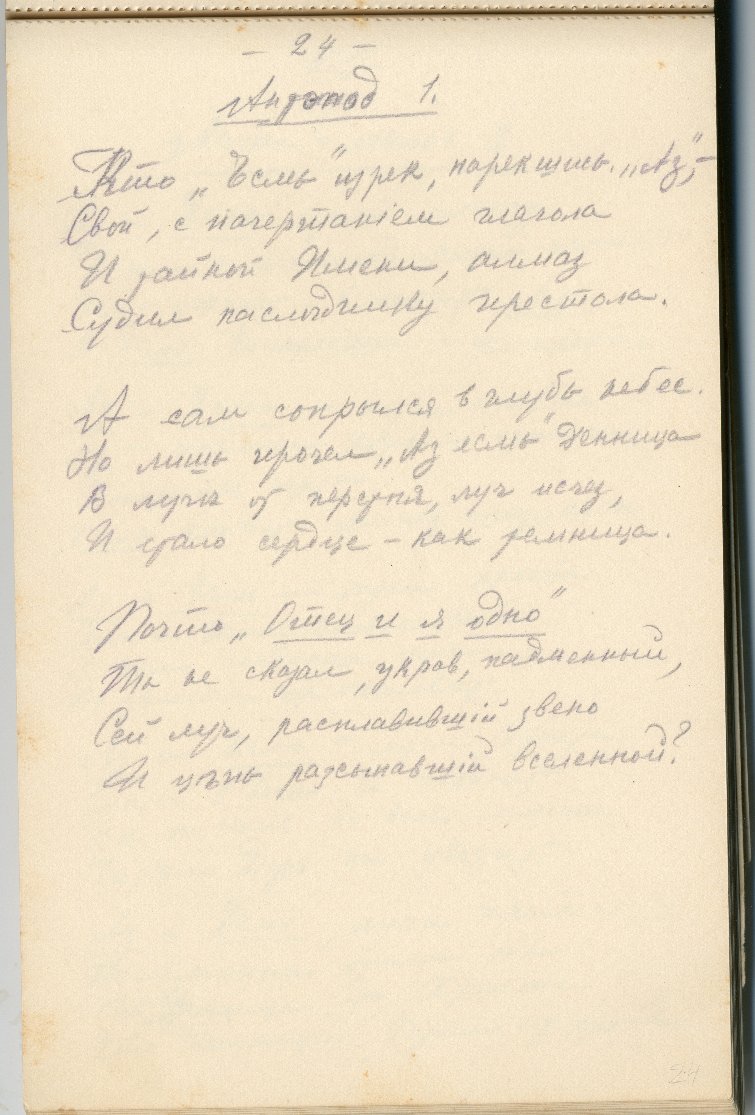 – 24 –
Антипод 1.
Кто „Есмь“ изрек, нарекшись „Аз“, –
Свой, с начертаніем глагола
И тайной Имени, алмаз
Судил наслѣднику престола.
А сам сокрылся в глубь небес.
Но лишь прочел „Аз есмь“ Денница
В лучѣ от перстня, луч исчез,
И стало сердце – как темница.
Почто „Отец и я одно“
Ты не сказал, укрыв, надменный,
Сей луч, расплавившій звено
И цѣпь разсыпавшій вселенной?
24